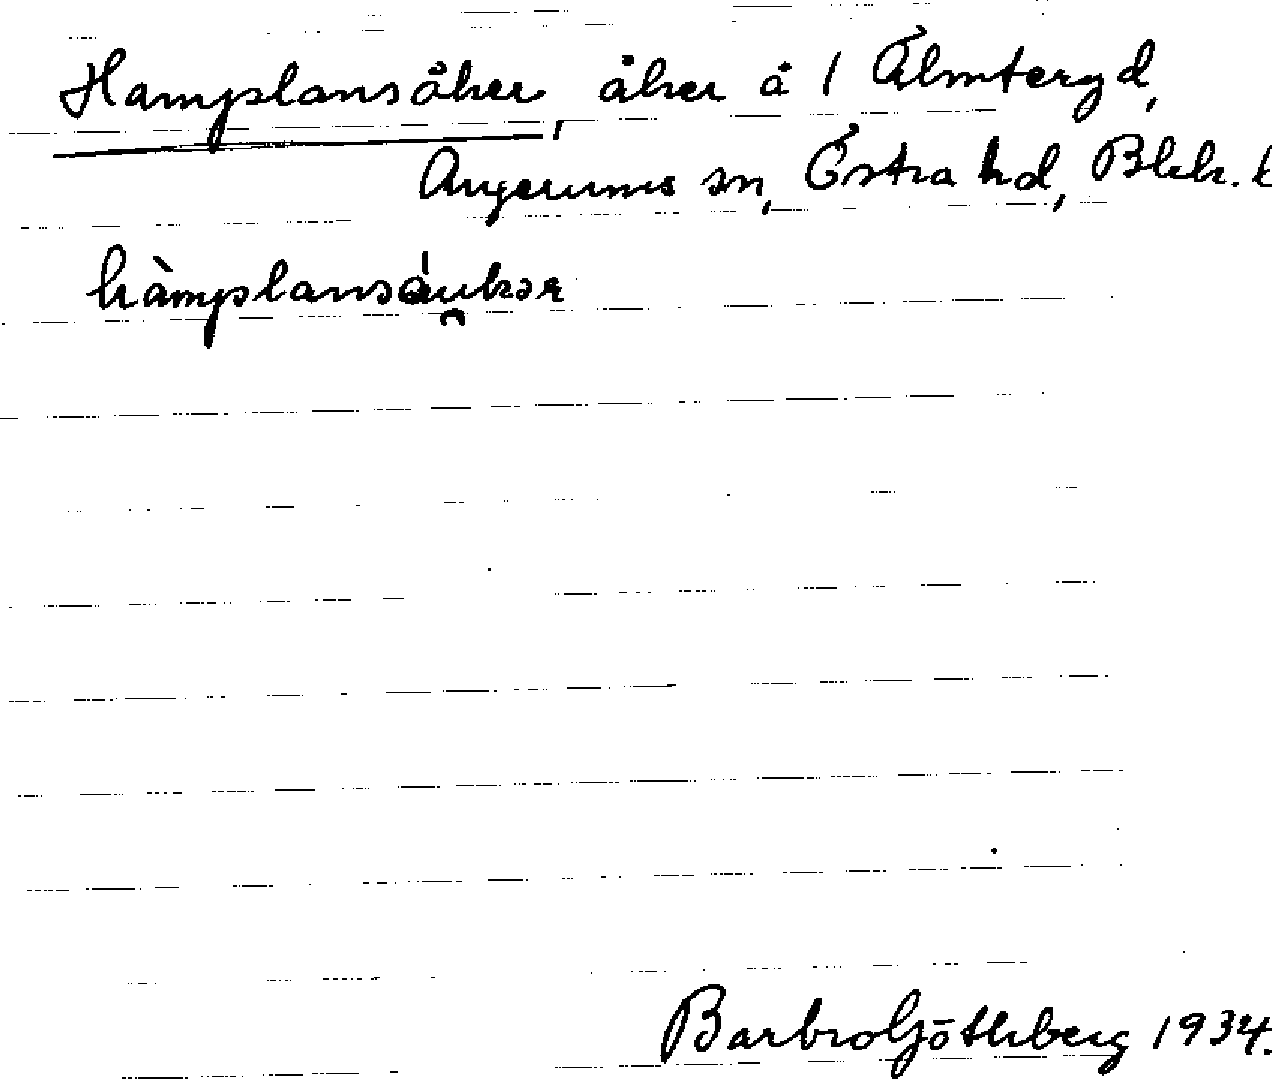 Hamplansåker, åker å 1 Älmteryd,
Augerums sn, Östra hd, Blek. l
hàmplansáukər
Barbro Götlberg 1934.